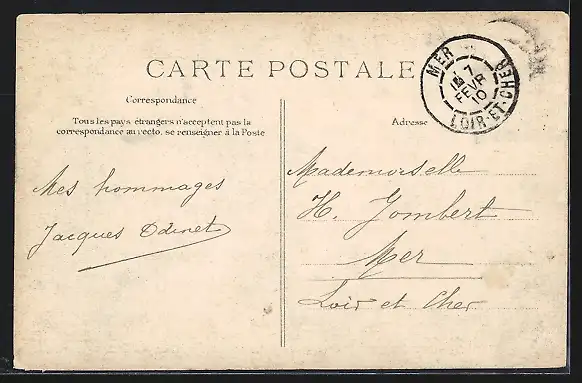 CARTE POSTALE
MER
7
FEVR
10
LOIR-ET-CHER
Correspondance
Tous les pays étrangers n'acceptent pas la
correspondance au recto, se renseigner à la Poste
Adresse
Mes hommages
Jacques Odinet
Mademoiselle
H. Jombert
Mer
Loir et Cher